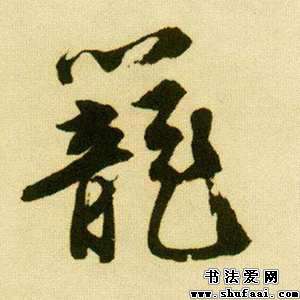 籠
书法爱网
www.shufaai.com